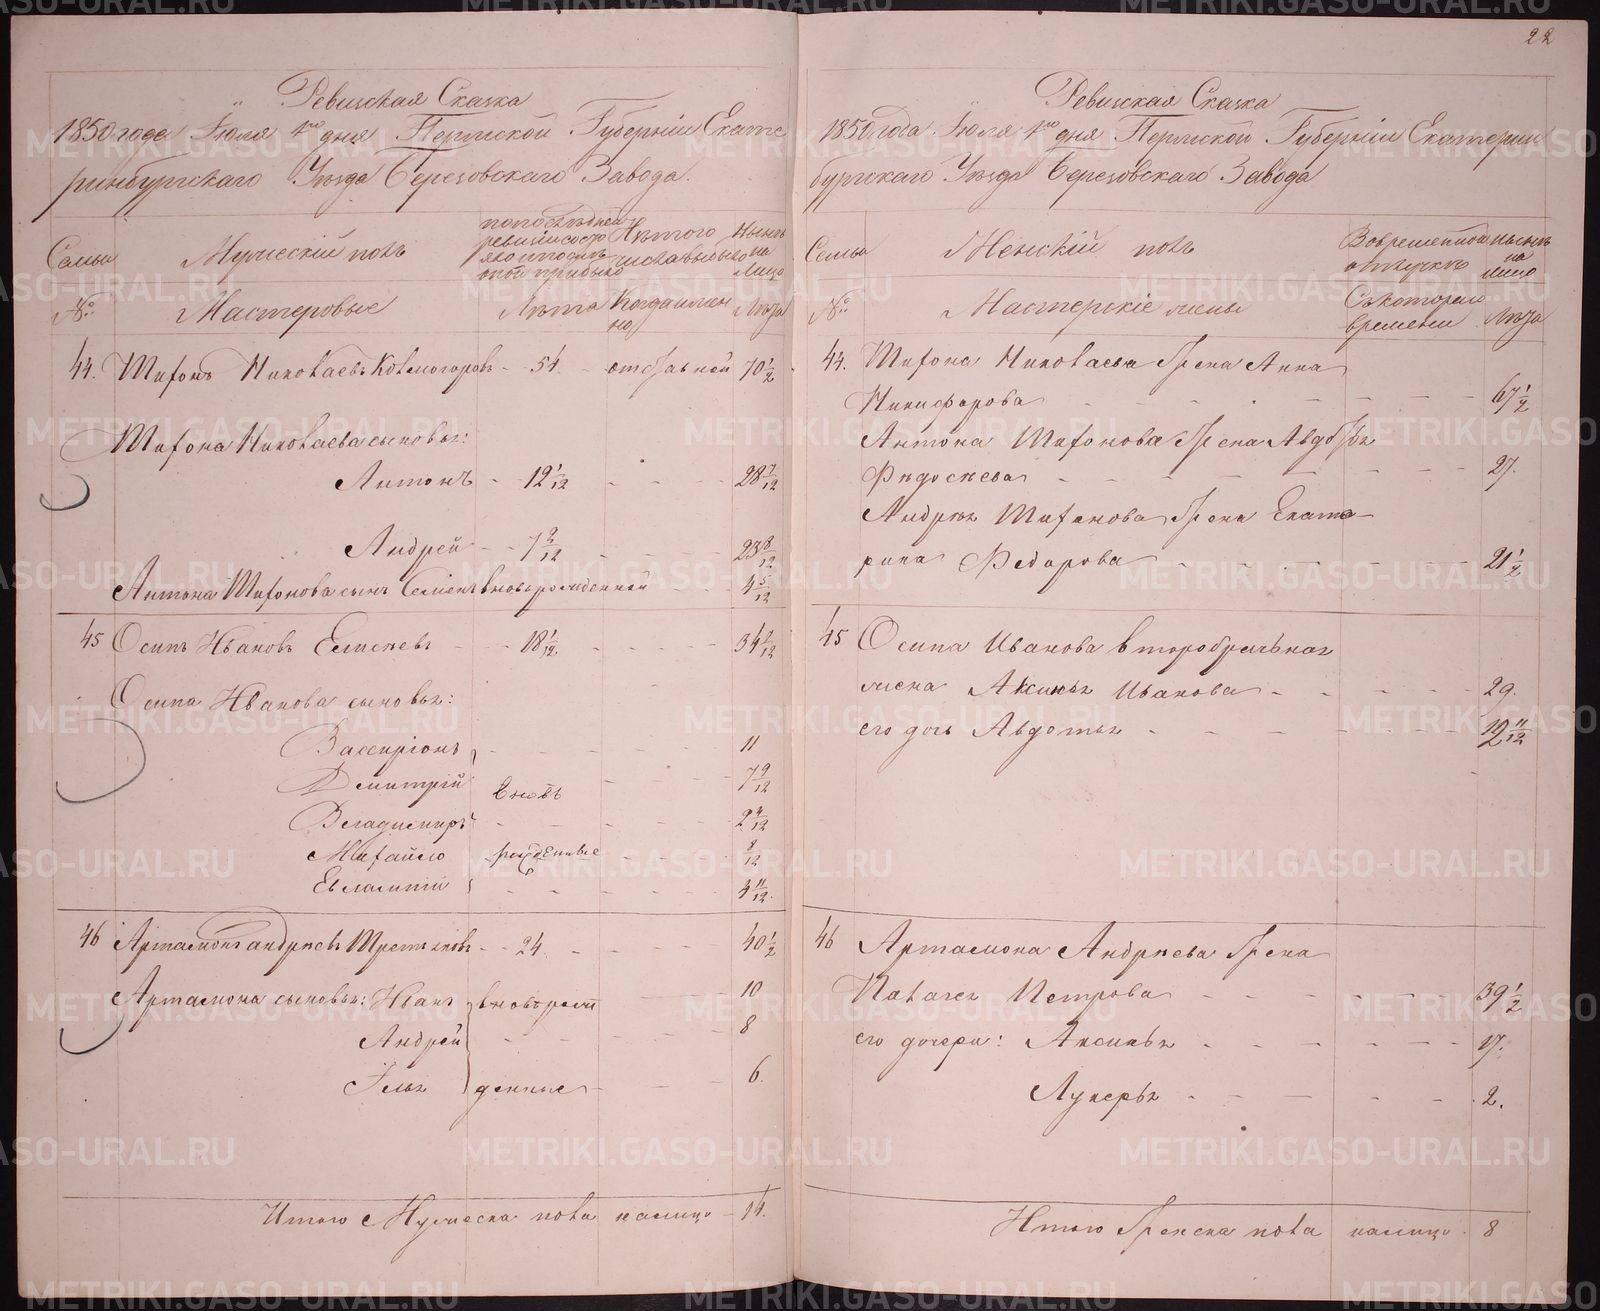 22
Ревизская Сказка
1850 года Июля 1го дня Пермской Губернiи Екате
ринбургскаго Уезда Березовскаго Завода.
Семьи
Мужескiй полъ
по последней ревизiи состо
яло и после
того прибыло
Изъ того
числа выбыло
Ныне
на
лицо
№
Мастеровые
Лета
Когда имен
но
Лета
44. Тифонъ Николаевъ Колмогоровъ - 54. - отставной 70 1/2
Тифона Николаева сыновья:
Антонъ - - 12 1/12 - - - 28 7/12
Андрей - - 7 2/12 - - - 23 8/12
Антона Тифонова сынъ Семенъ вновьрожденной - - - 4 5/12
45 Осипъ Ивановъ Елисеевъ - - 18 1/12. - - - 34 7/12
Осипа Иванова сыновья:
11
Дмитрiй 7 9/12
вновь
Владимиръ 2 4/12
Михайло рожденные 8/12
Евлампiй 4 11/12.
46 Артамонъ андреевъ Третьяковъ - - 24. - - - 40 1/2
Артамона сыновья: Иванъ вноврож 10
Андрей - - - - 8
Илья денные - - 6.
Итого Мужеска пола налицо - 14.
Ревизская Сказка
1850 года Июля 1го дня Пермской Губернiи Екатерин
бургскаго Уезда Березовскаго Завода
Семьи
Женскiй полъ
Во временной
отлучке
ныне
на
лицо
№
Мастерскiе жены
Съ котораго
времени
Лета
44. Тифона Николаева жена Анна
Никифорова - - - - 67 1/2
Антона Тифонова жена Авдотья
Федосеева - - - - 27.
Андрея Тифонова жена Екате-
рина Федорова - - - - 21 1/2
45 Осипа Иванова второбрачная
жена Аксинья Иванова - - - - 29.
его дочь Авдотья - - - - 12 11/12
46 Артамона Андреева жена
Наталья Петрова - - - - 39 1/2
его дочери: Аксинья - - - - 17.
Лукерья - - - - 2.
Итого Женска пола налицо. 8
METRIKI.GASO-URAL.RU